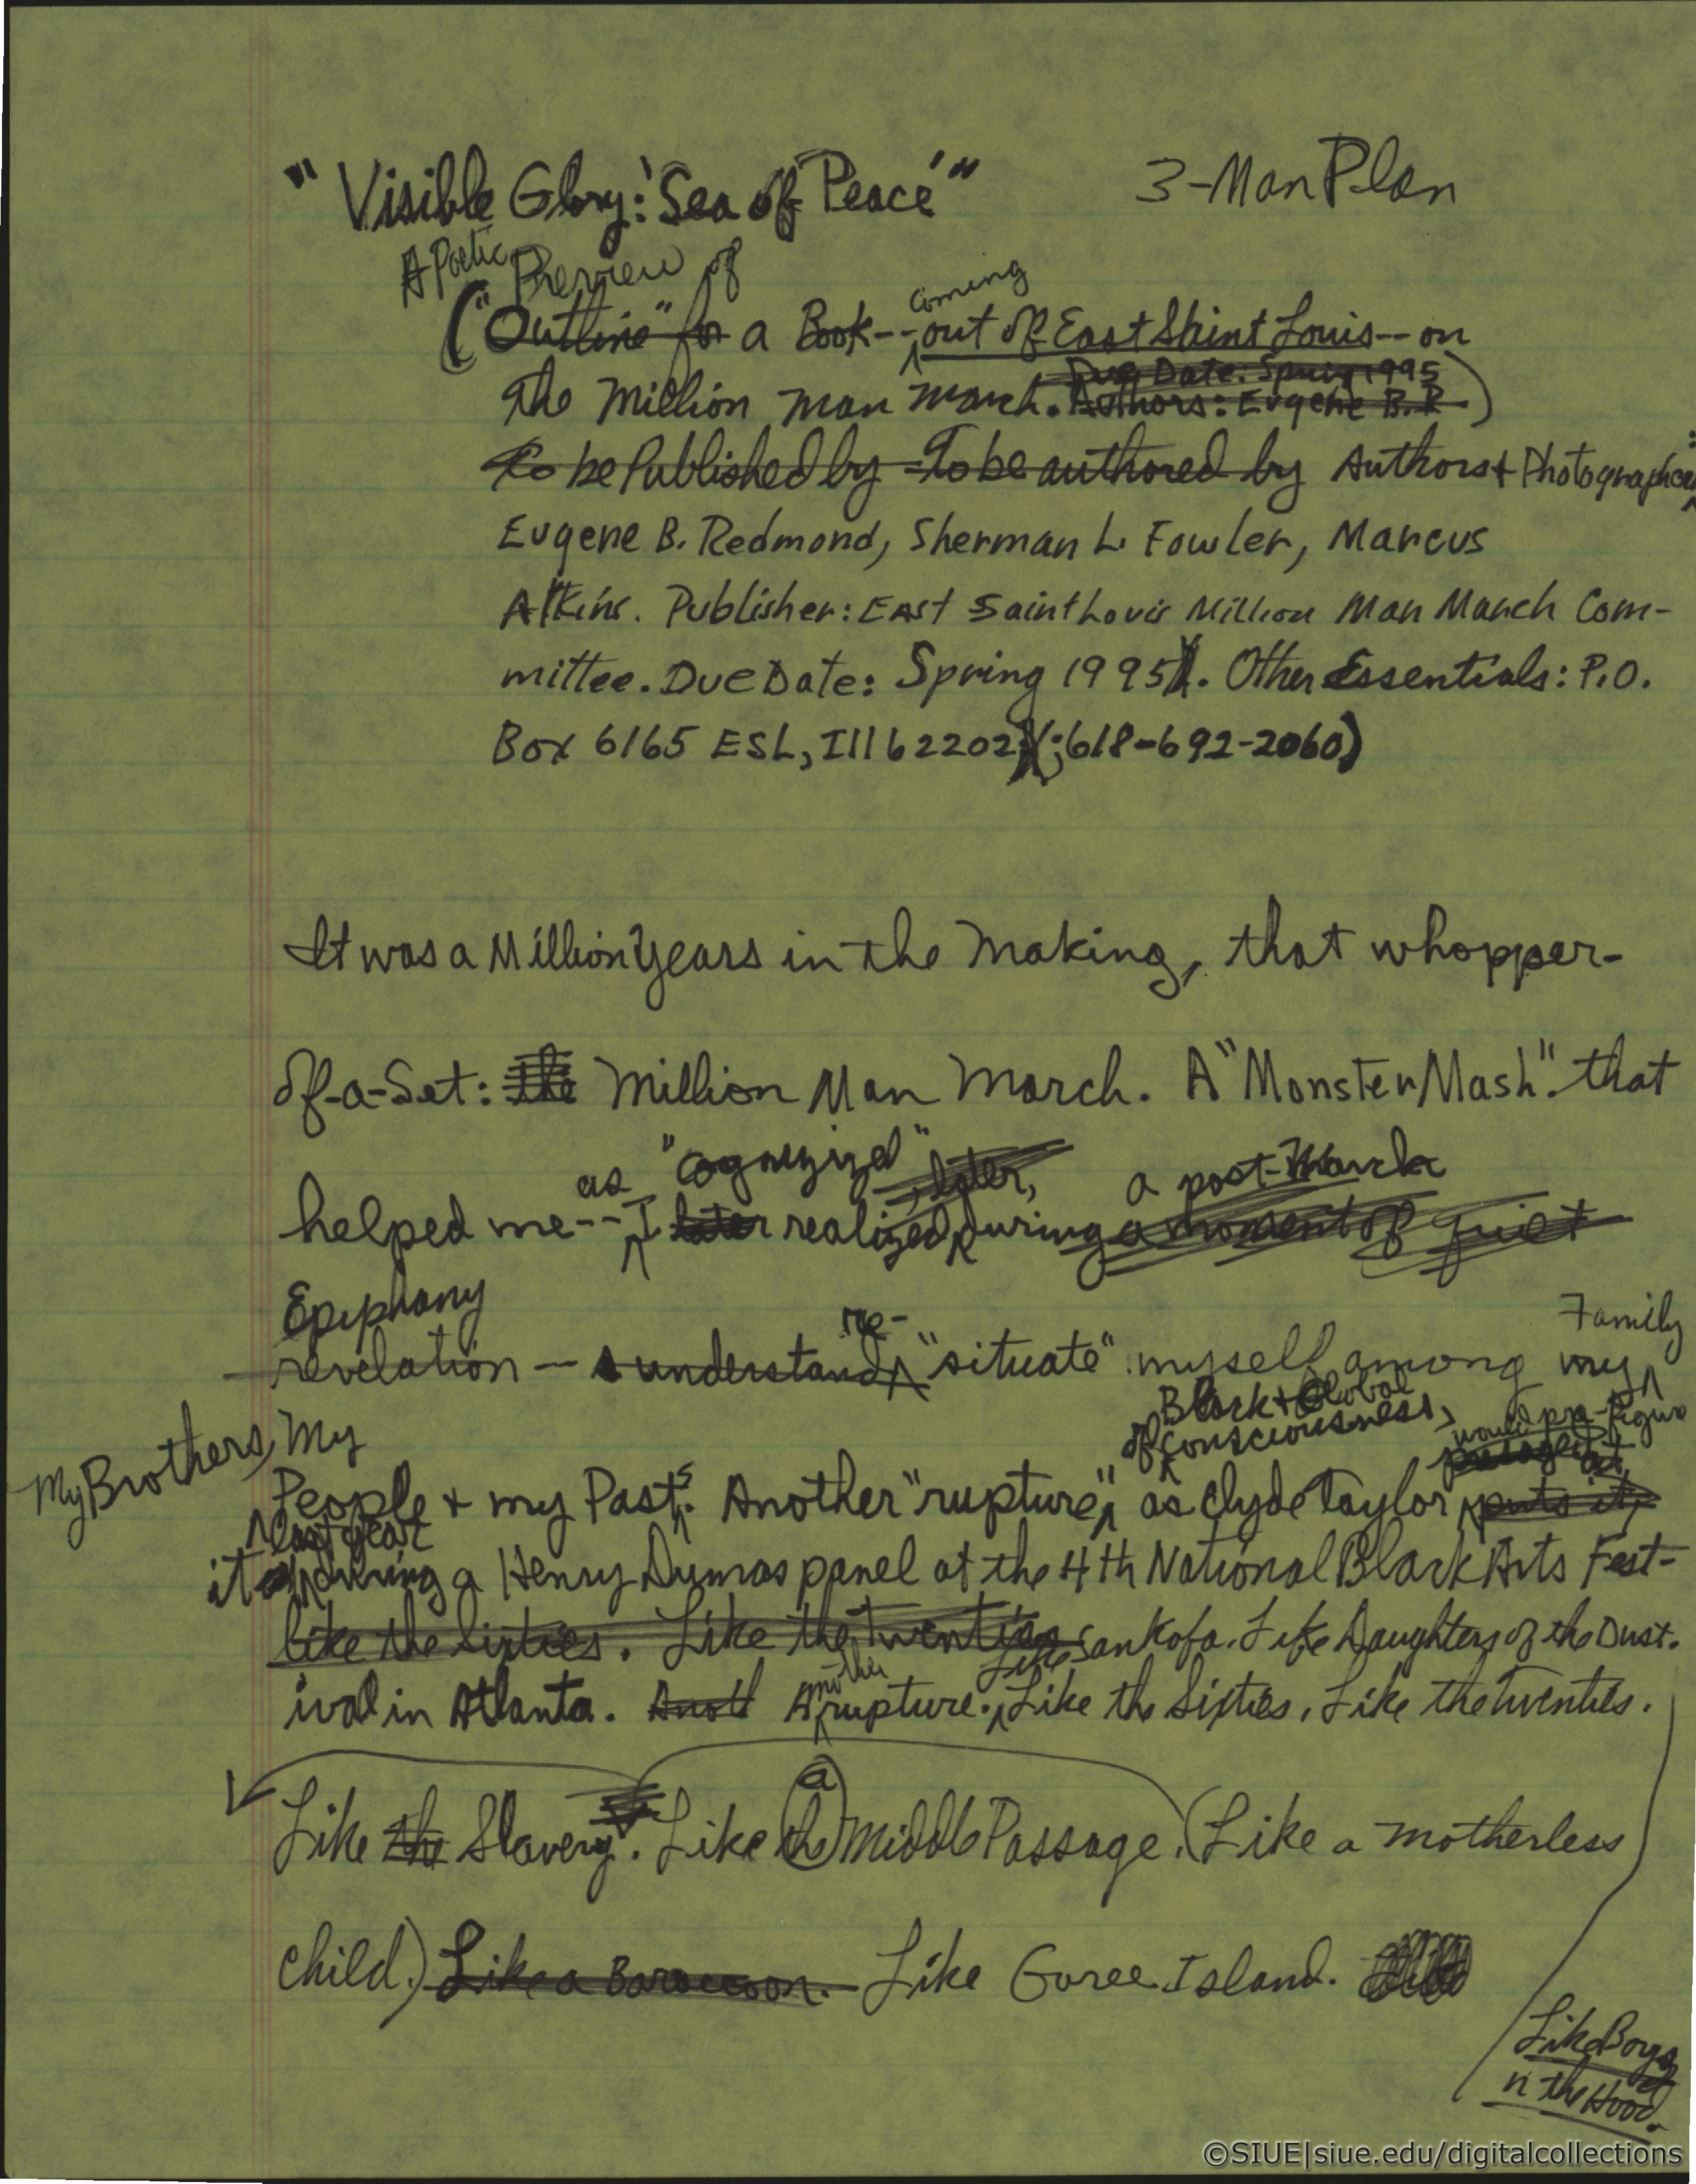 "Visible Glory: 'Sea of Peace'" 3-Man Plan
A Poetic Preview of
coming
("Outline" for a Book--out of East Saint Louis--on
Due Date: Spring 1995
the Million Man March. Authors: Eugene B. R)
To be Published by To be authored by Authors + Photographers:
Eugene B. Redmond, Sherman L. Fowler, Marcus
Atkins. Publisher: East Saint Louis Million Man March Com-
mittee. Due Date: Spring 1995). Other Essentials: P.O.
Box 6165 ESL, Ill 62202; (618-692-2060)
It was a Million Years in the Making, that whopper-
of-a-Set: the Million Man March. A "Monster Mash" that
as "cognized", later, a post-March
helped me--I later realized, during a moment of quiet
Epiphany
re- Family
revelation -- understand "situate" myself among my
Black + Global
My Brothers, My of consciousness, would pre-figure
People + my Pasts. Another "rupture," as Clyde Taylor puts it,
last year
it during a Henry Dumas panel at the 4th National Black Arts Fest-
like the Sixties. Like the Twenties Like Sankofa. Like Daughters of the Dust.
nother
ival in Atlanta. Anoth A rupture. Like the Sixties. Like the Twenties.
a
Like the Slavery. Like the Middle Passage. (Like a motherless
child.) Like a Baroccoon. Like Goree Island.
Like Boyz
n the Hood.
©SIUE|siue.edu/digitalcollections